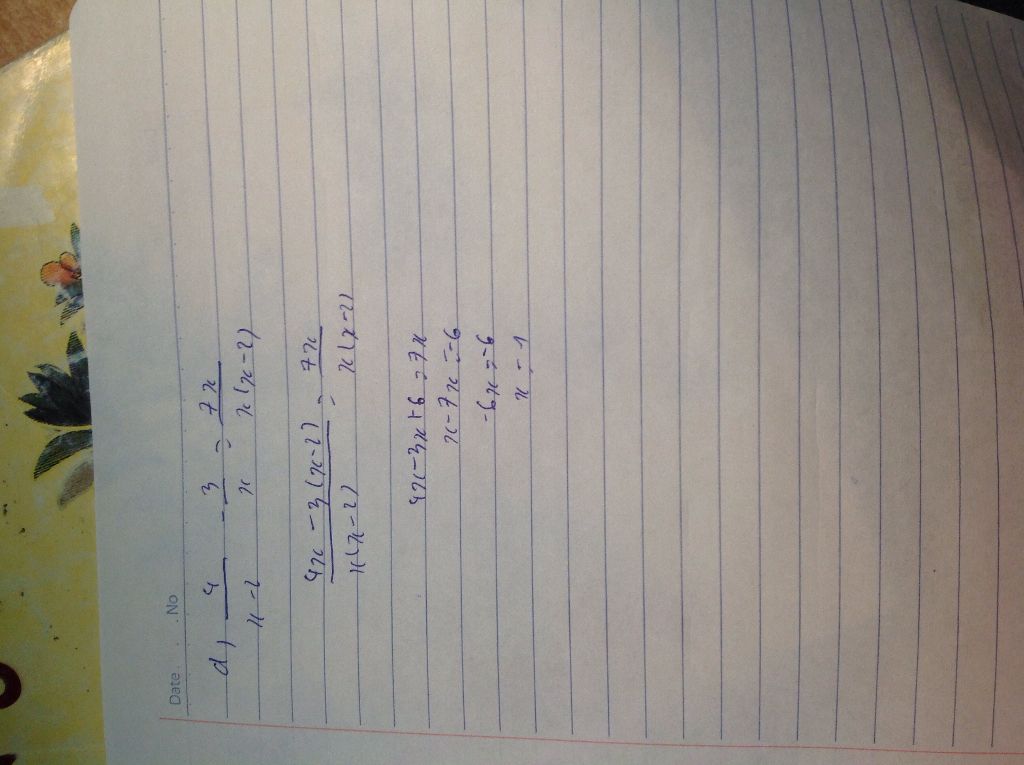 Date . . No
d) 4/(x-2) - 3/x = 7x/(x(x-2))
(4x - 3(x-2))/(x(x-2)) = 7x/(x(x-2))
4x - 3x + 6 = 7x
x - 7x = -6
-6x = -6
x = 1